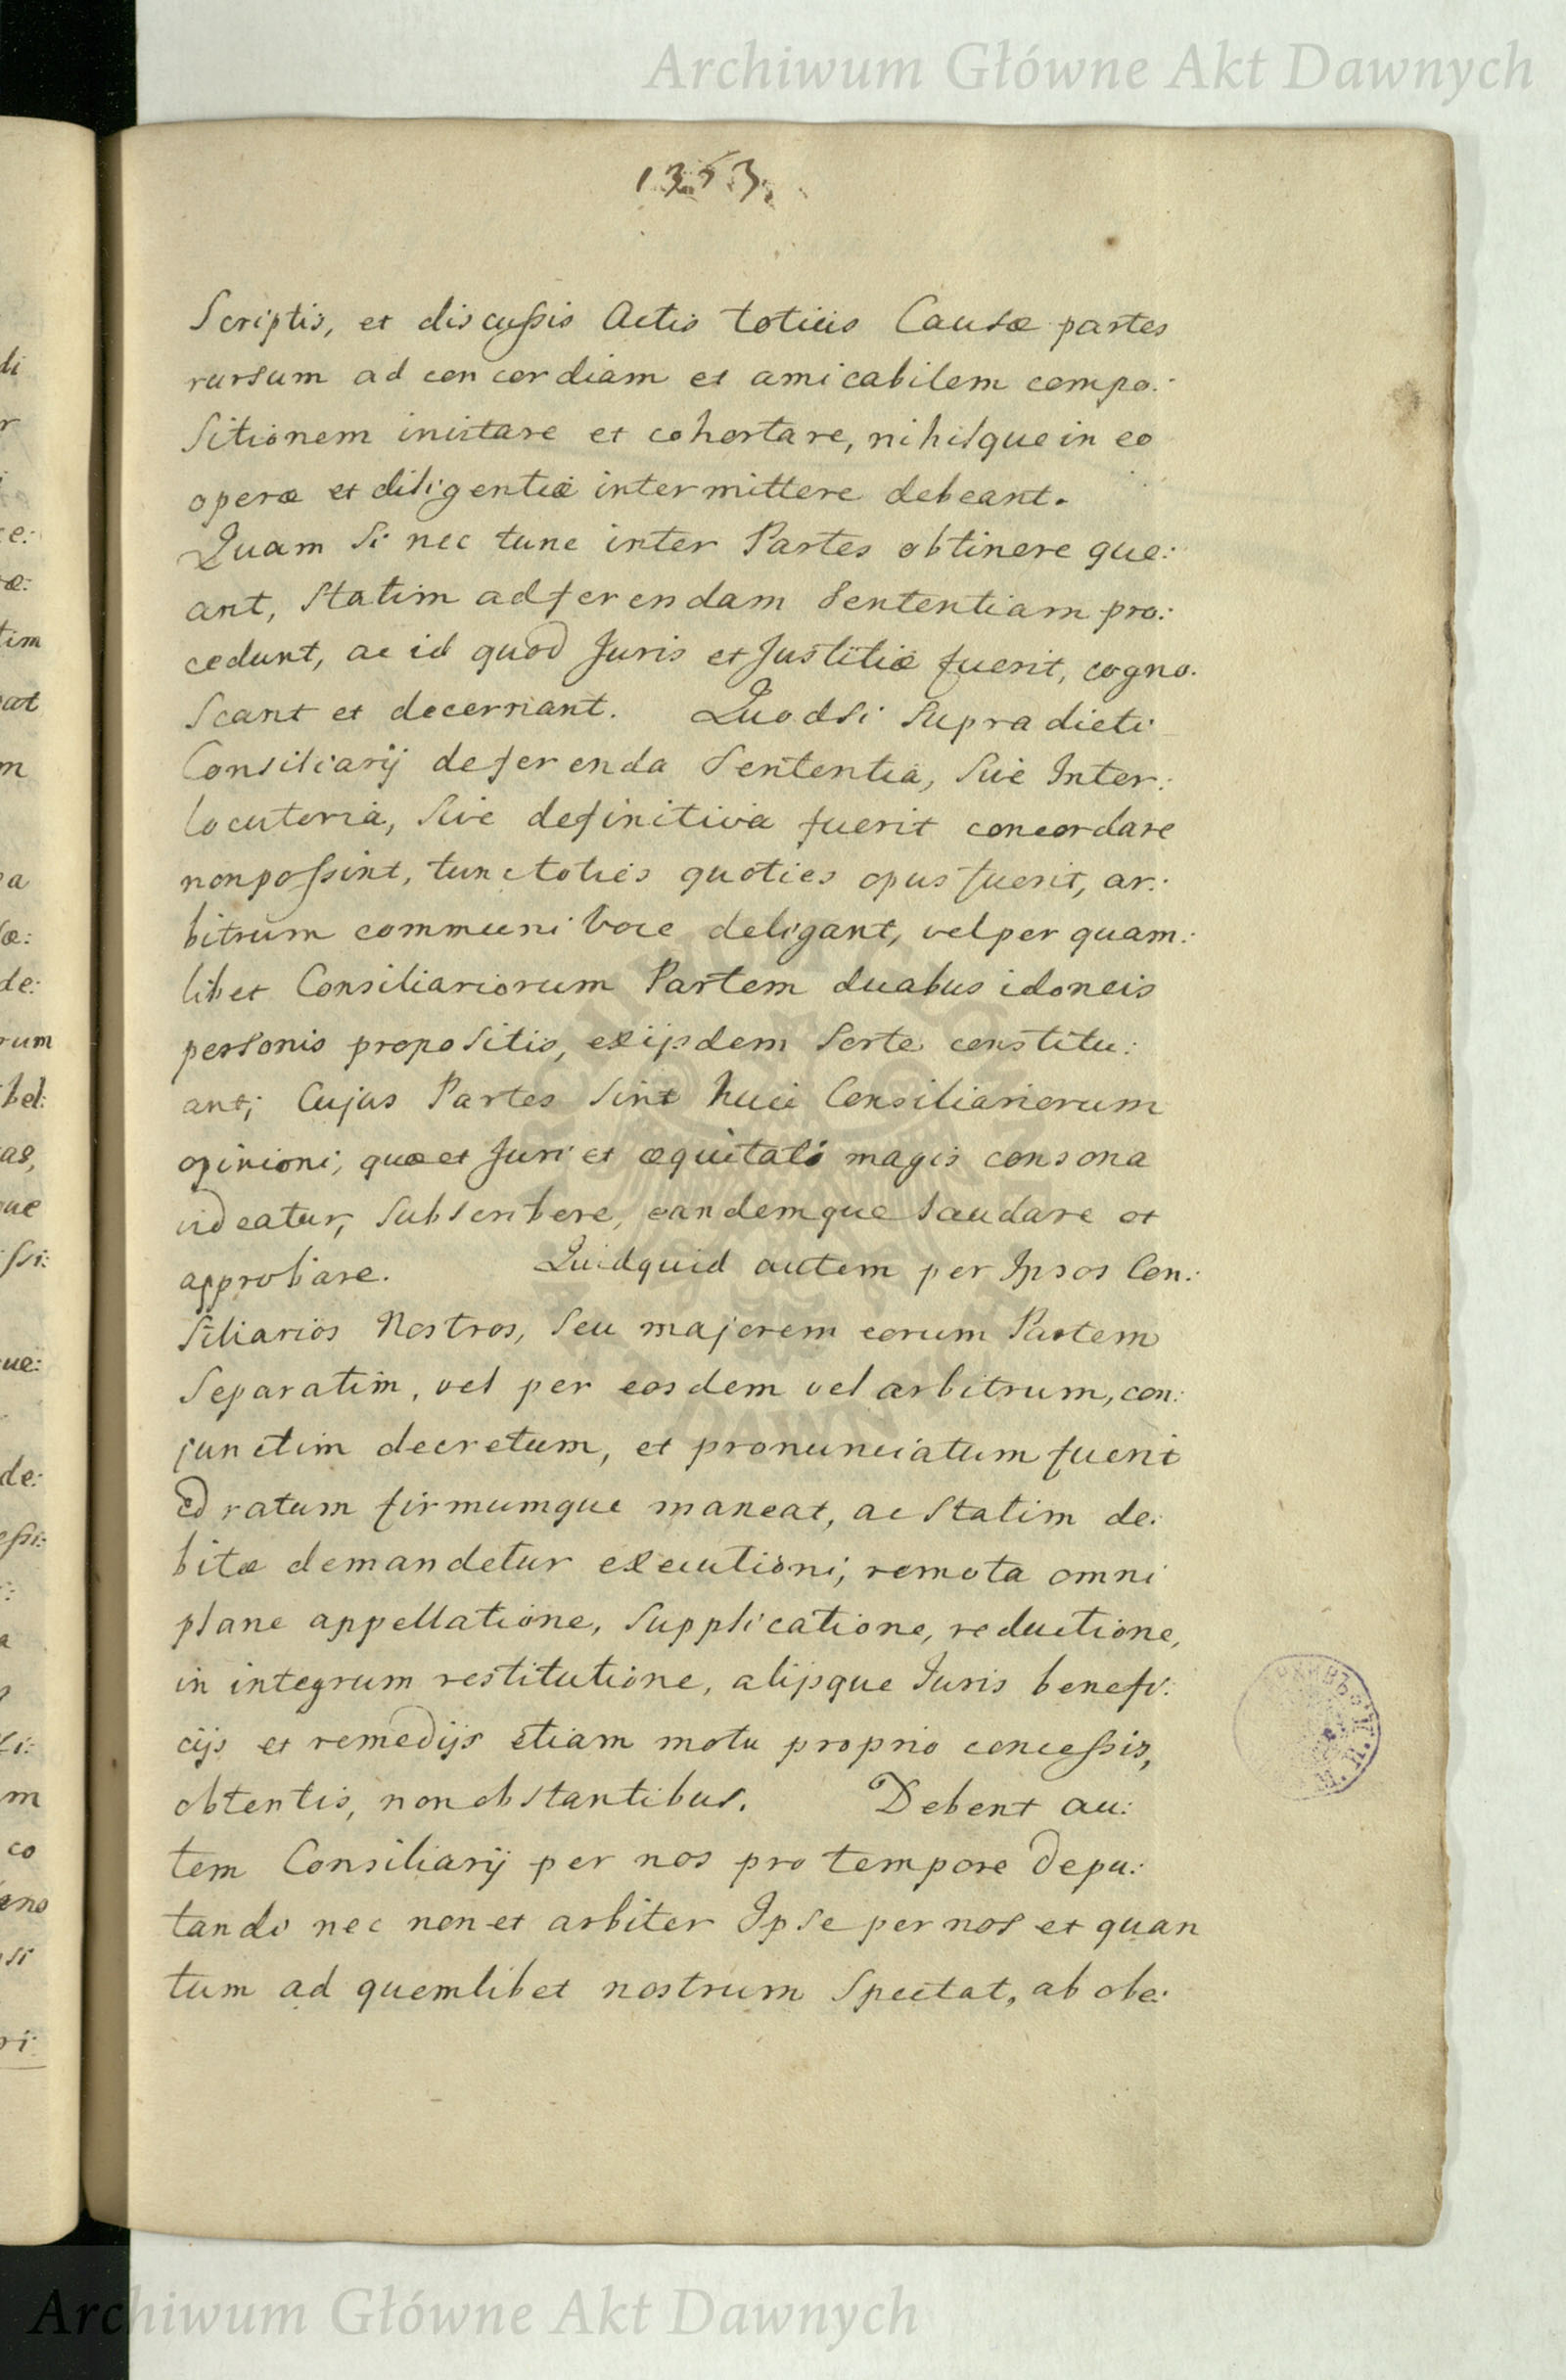 Archiwum Główne Akt Dawnych
1353.
Scriptis, et discussis Actis totius Causæ partes
rursum ad concordiam et amicabilem compo:
sitionem invitare et cohortare, nihilque in eo
operæ et diligentiæ intermittere debeant.
Quam si nec tunc inter Partes obtinere que:
ant, statim ad ferendam Sententiam pro:
cedunt, ac id quod Juris et Justitiæ fuerit, cogno.
scant et decernant. Quodsi supradicti
Consiliarij deferenda Sententia, sive Inter:
locutoria, sive definitiva fuerit concordare
non possint, tunc toties quoties opus fuerit, ar:
bitrum communi voce deligant, vel per quam:
libet Consiliariorum Partem duabus idoneis
personis propositis, ex ijsdem sorte constitu:
ant; Cujus Partes sint huic Consiliariorum
opinioni, quæ et Juri et æquitati magis consona
videatur, subscribere, eandemque laudare et
approbare. Quidquid autem per Ipsos Con:
siliarios Nostros, seu majorem eorum Partem
separatim, vel per eosdem vel arbitrum, con:
junctim decretum, et pronunciatum fuerit
id ratum firmumque maneat, ac statim de:
bitæ demandetur executioni, remota omni
plane appellatione, supplicatione, reductione,
in integrum restitutione, alijsque Juris benefi:
cijs et remedijs etiam motu proprio concessis,
obtentis, non obstantibus. Debent au:
tem Consiliarij per nos pro tempore depu:
tandi nec non et arbiter Ipse per nos et quan
tum ad quemlibet nostrum spectat, ab obe:
Archiwum Główne Akt Dawnych